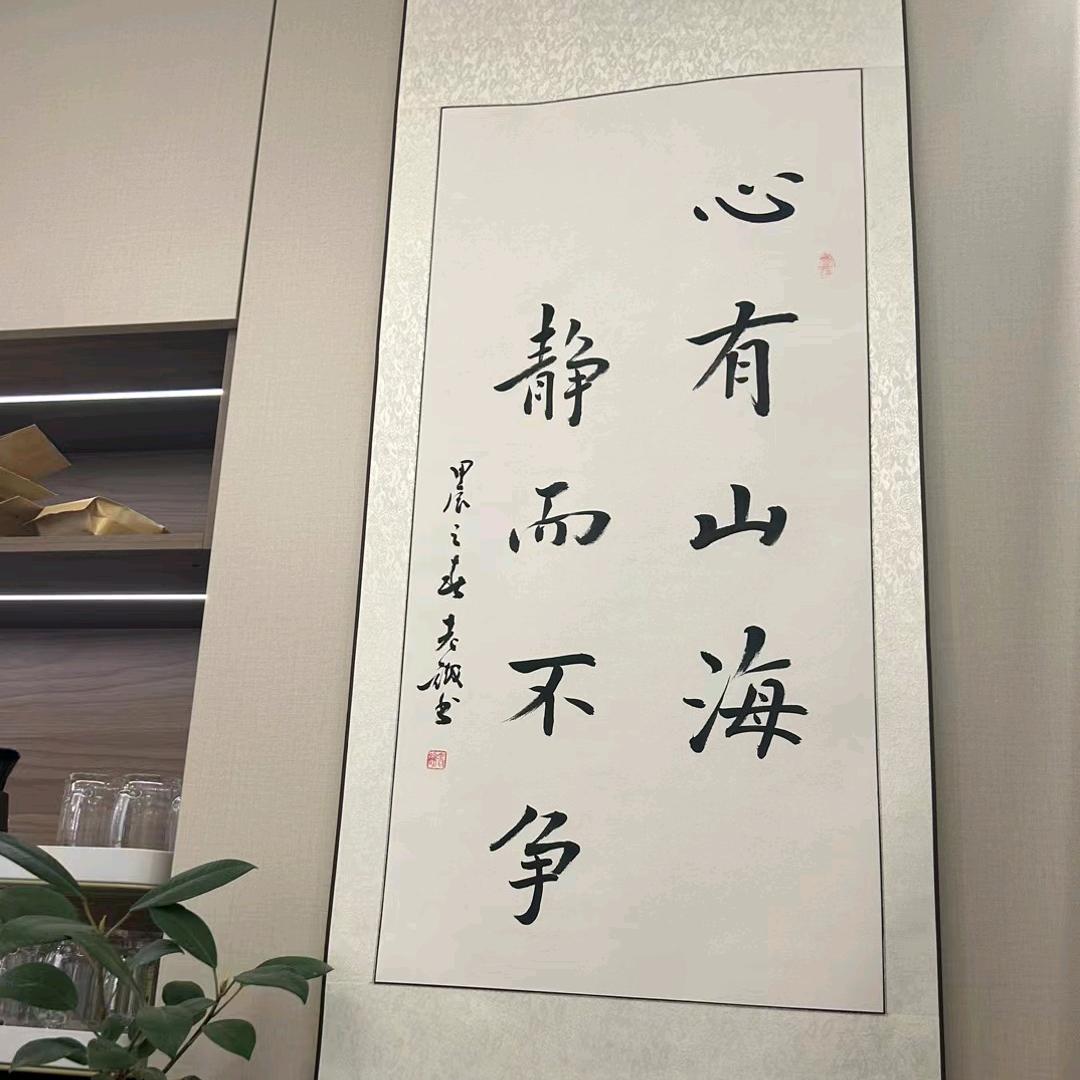 心有山海
静而不争
甲辰之春老诚书